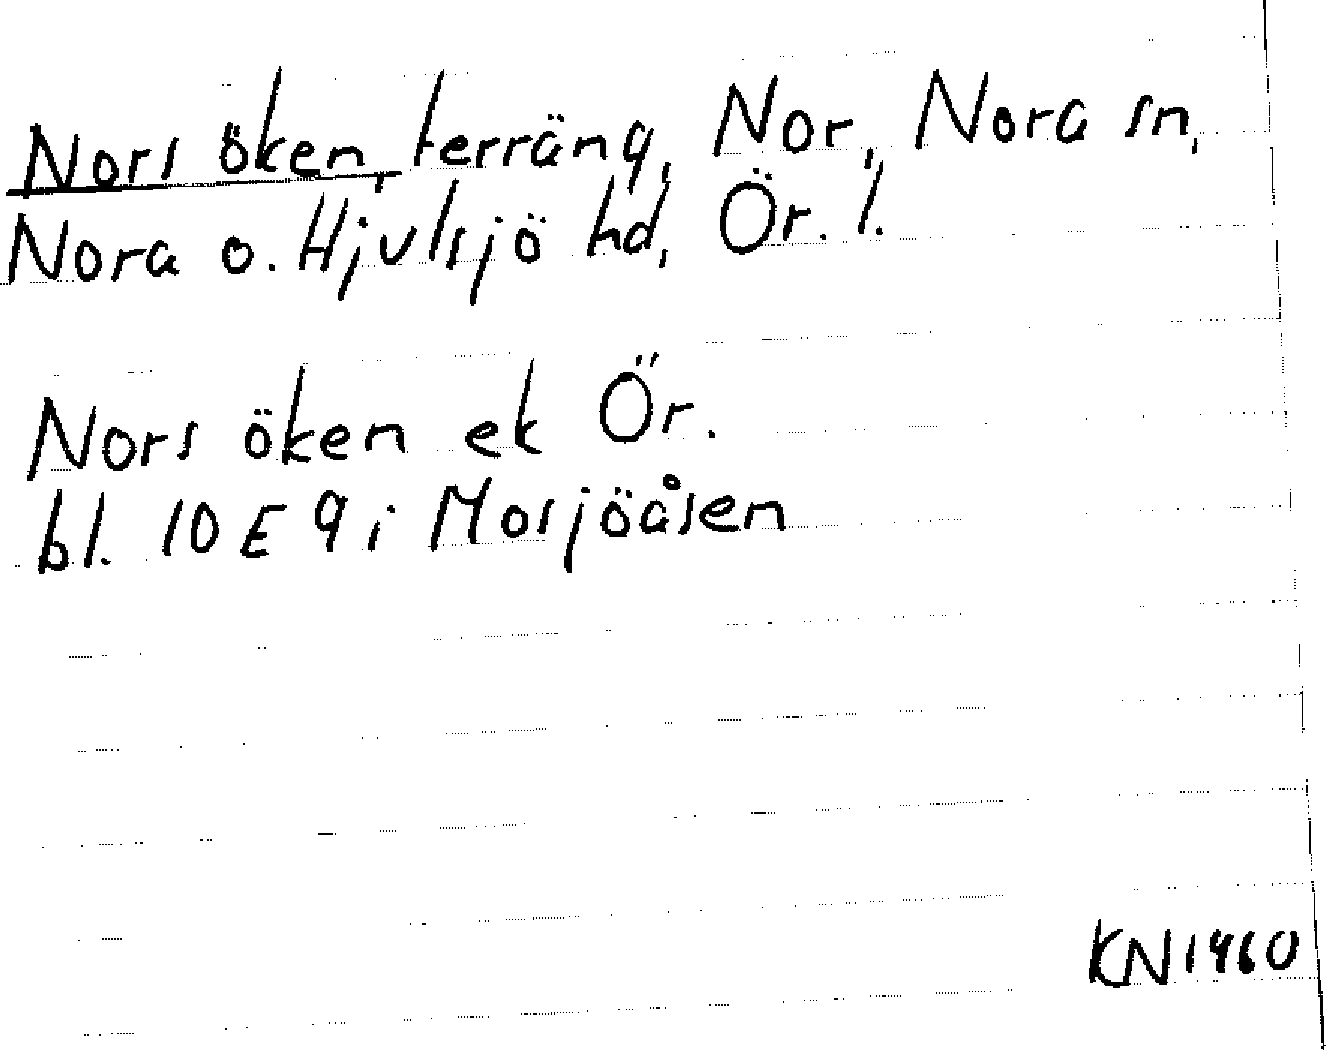 Nors öken, terräng, Nor, Nora sn,
Nora o. Hjulsjö hd, Ör. l.
Nors öken ek Ör.
bl. 10 E 9 i Mosjöåsen
KN1960